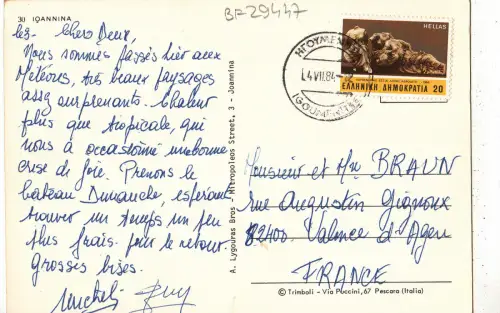 30 IOANNINA
BF29447
Le 3 - Chers Deux,
Nous sommes passés hier aux
Météores, très beaux paysages
assez surprenants. Chaleur
plus que tropicale, qui
nous a occasionné une bonne
crise de foie. Prenons le
bateau Dimanche, espérant
trouver un temps un peu
plus frais pour le retour
grosses bises.
Michel Guy
A. Lygouras Bros - Mitropoleos Street, 3 - Joannina
ΗΓΟΥΜΕΝ
14 VII.84
IGOUMENITSA
HELLAS
ΕΛΛΗΝΙΚΗ ΔΗΜΟΚΡΑΤΙΑ 20
Monsieur et Mme BRAUN
rue Augustin Gignoux
82400 Valence d'Agen
FRANCE
© Trimboli - Via Puccini, 67 Pescara (Italia)